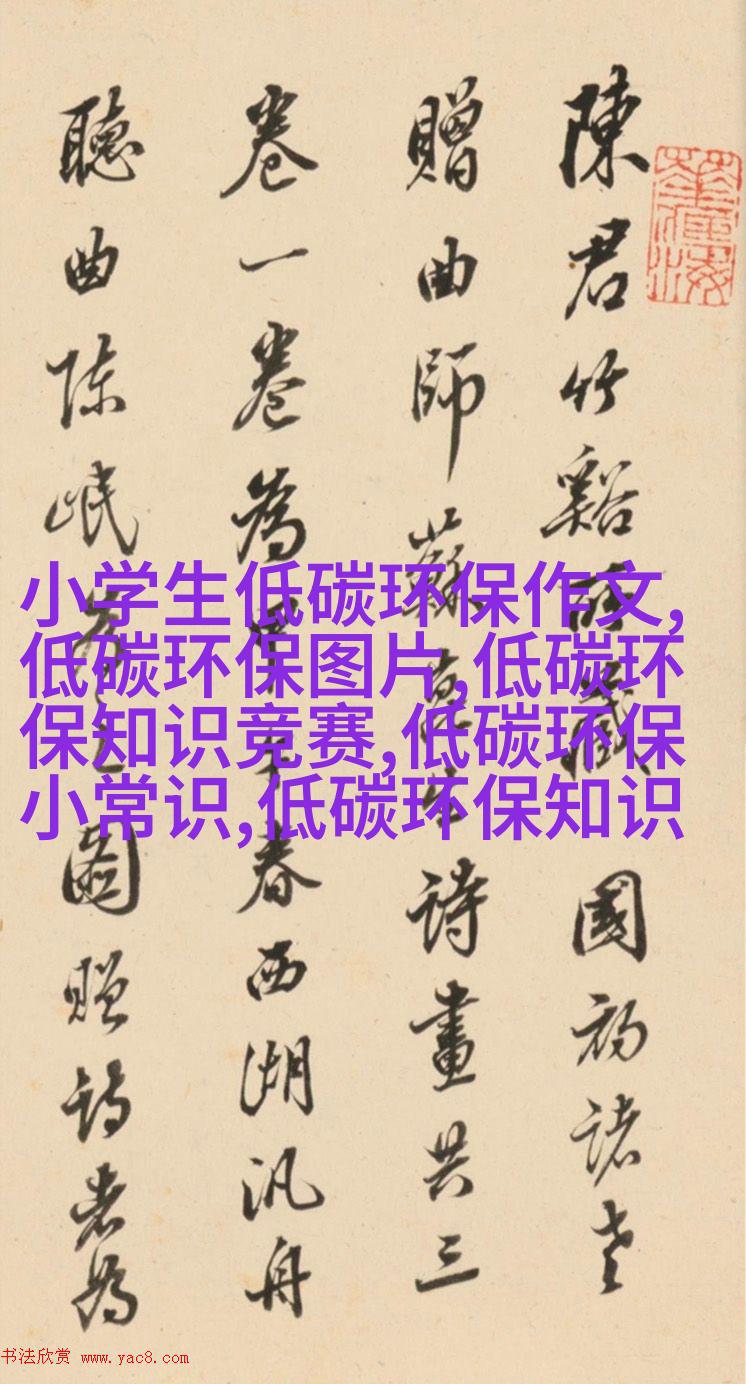 陳君竹谿所藏國初諸老
贈曲師蘇崑生詩畫共三
卷一卷為春西湖汎舟
聽曲陳岷圖贈詩者為
小学生低碳环保作文,
低碳环保图片,低碳环
保知识竞赛,低碳环保
小常识,低碳环保知识
书法欣赏 www.yac8.com